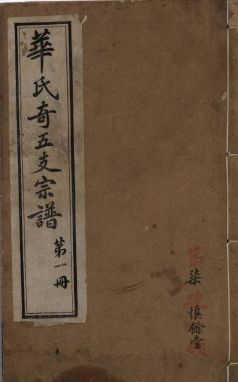 華氏奇五支宗譜
第一冊
柒
慎餘堂